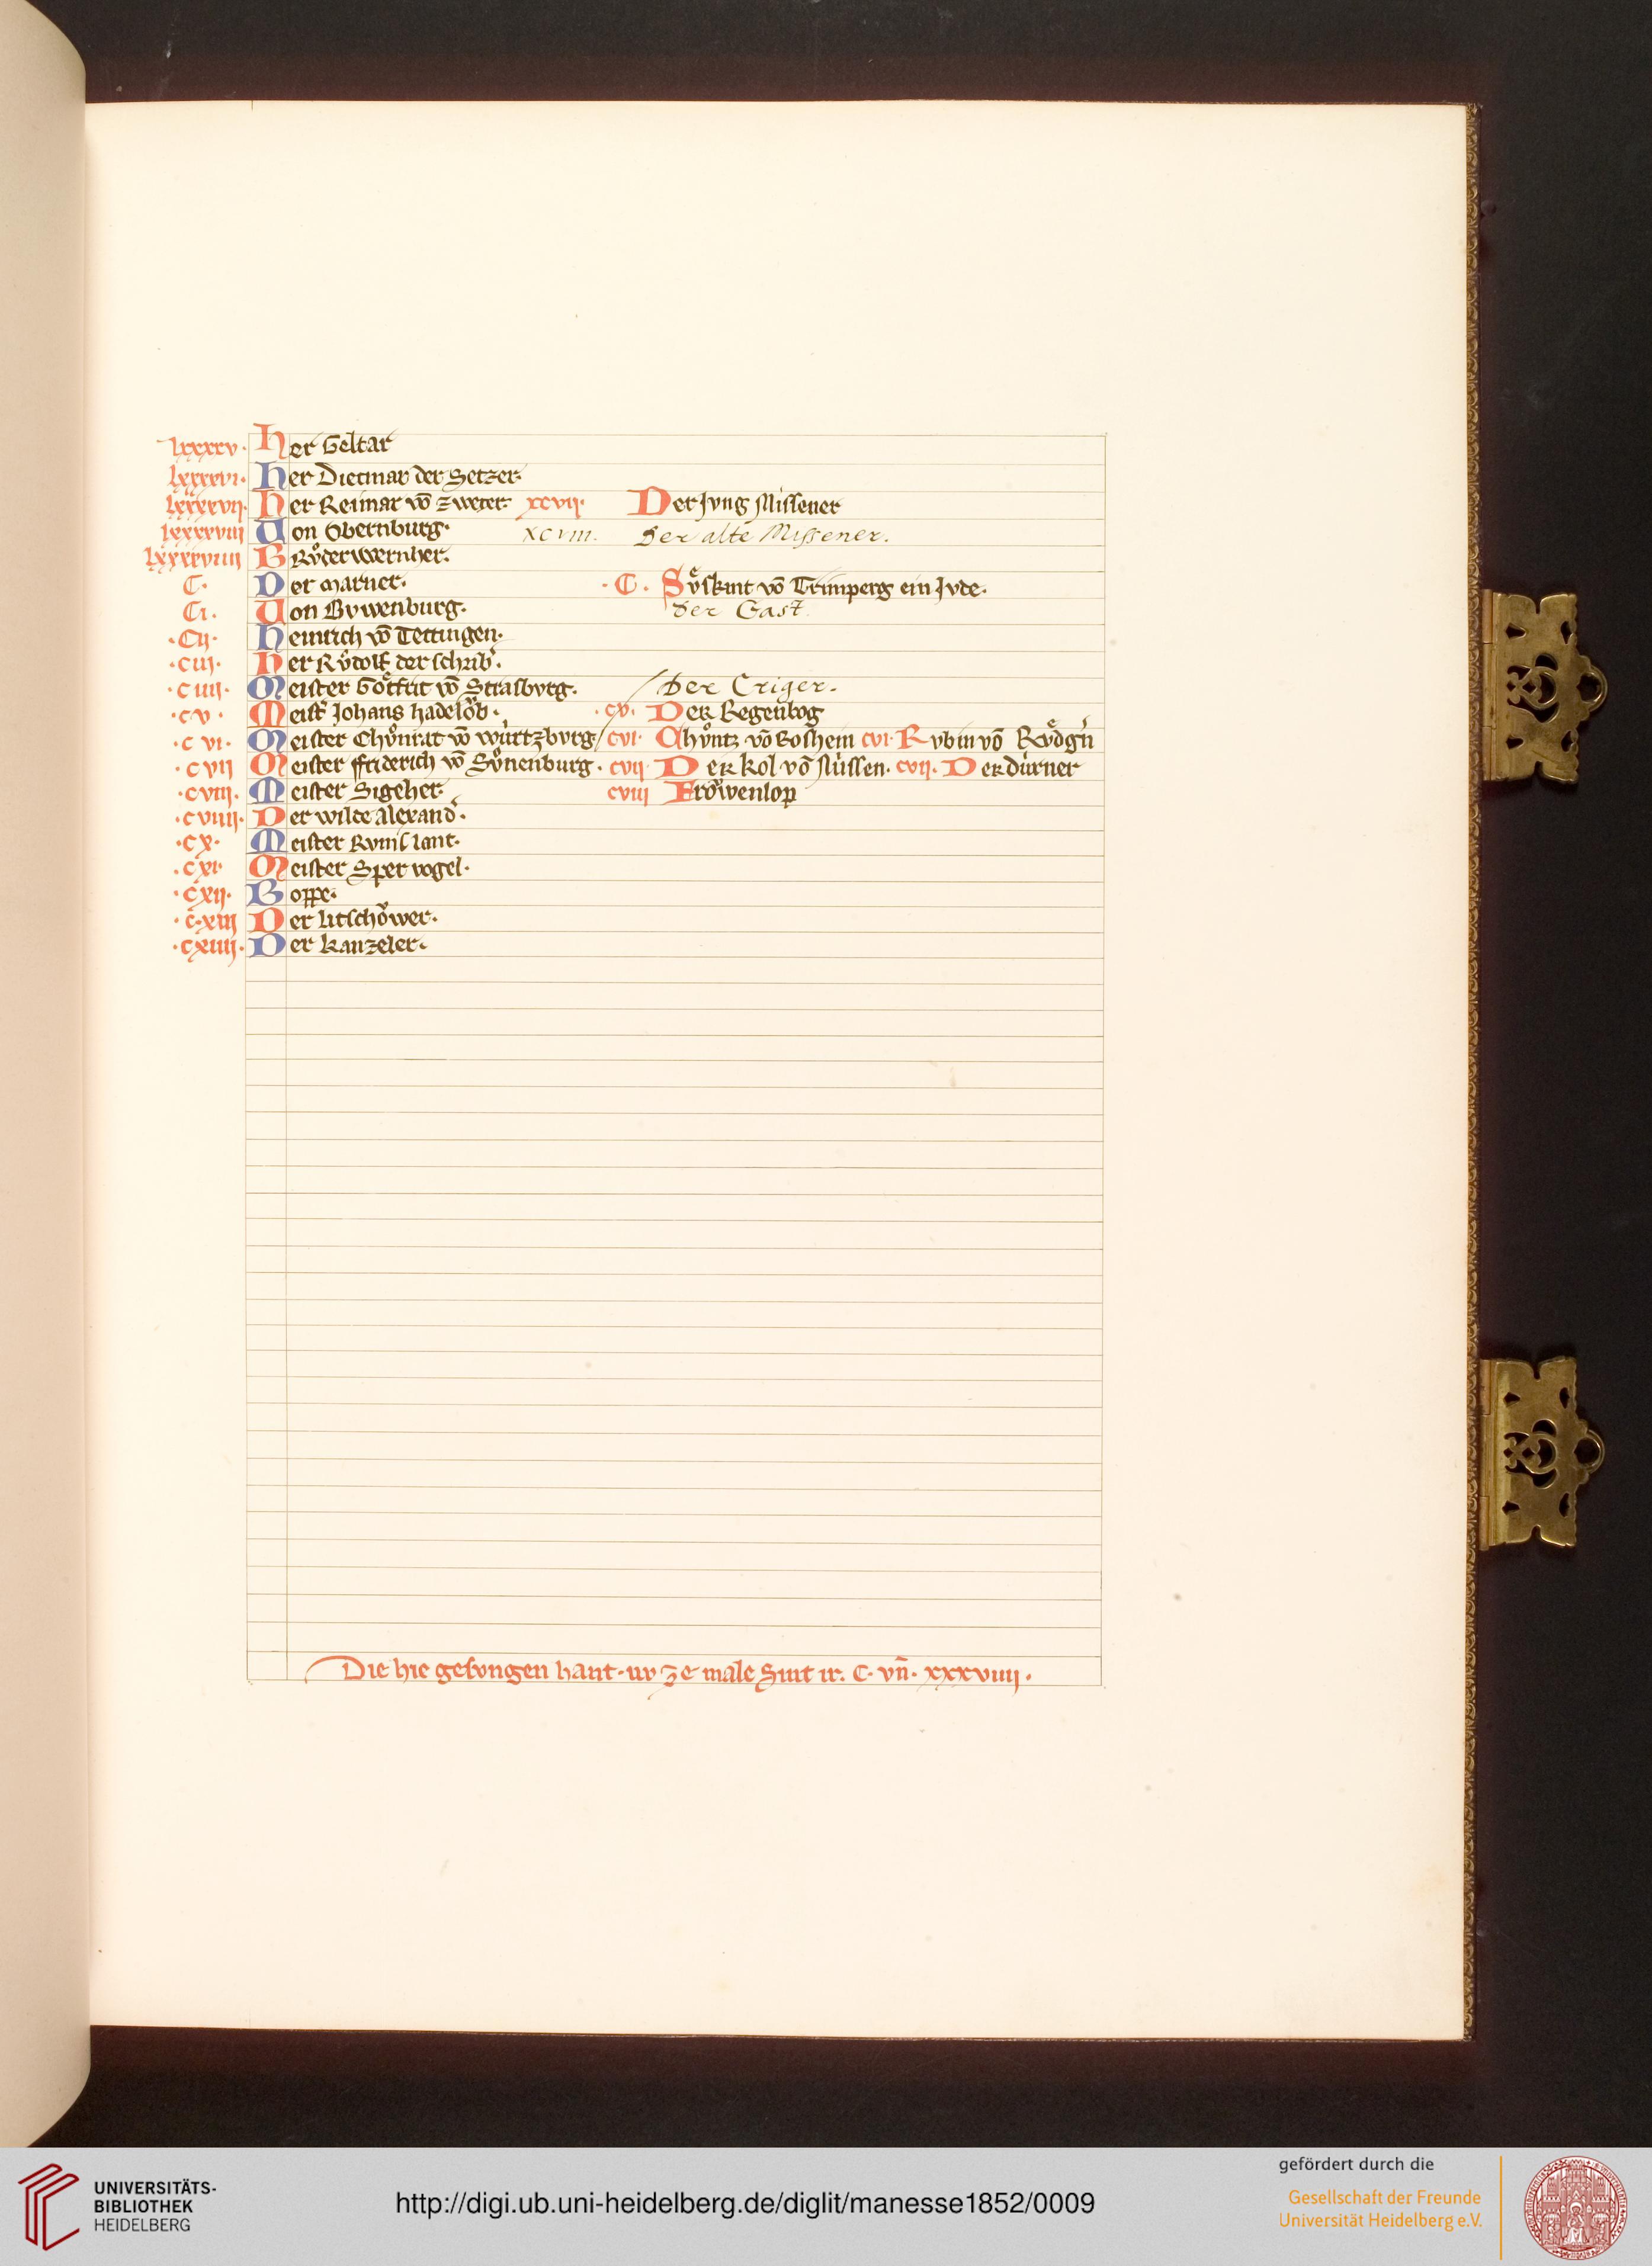 lxxxxv· Her Geltar
lxxxxvi· Her Dietmar der Setzer·
lxxxxvii· Her Reimar vō zweter· xcvii· Der Jvng Missener
lxxxxviii Uon Obernburg· xcviii. Der alte Missener.
lxxxxviiii Brůder wernher·
C· Der marner· · C · Sv̊skint vō Trimperg ein Jvde·
Ci· Uon Bvwenburg· der Gast
·Cij· Heinrich vō Tettingen·
·ciij· Her Rv̊dolf der schrib̕·
·ciiij· Meister Gotfrit vō Strasbvrg· / Der Criger.
·cv· Meist̕ Johans hadelǒb· ·cv· Der Regenbog
·cvi· Meister Chv̊nrat vō wúrtzbvrg / cvi· Chv̊ntz vō Rosheim cvi· Rvbin vō Rv̊dg̕n
·cvij Meister ffriderich vō Sv̊nenburg· cvij· Der kol vō Nússen· cvij· Der dúrner
·cviij· Meister Sigeher· cviij Frǒwenlop
·cviiij· Der wilde Alexand̕·
·cx· Meister Rvmslant·
·cxi· Meister Spervogel·
·cxij· Boppe·
·cxiij Der Litschǒwer·
·cxiiij· Der kanzeler·
Die hie gesvngen hant· nv ze male Sint ir· C· vn̄· xxxviiij·
UNIVERSITÄTS-
BIBLIOTHEK
HEIDELBERG
http://digi.ub.uni-heidelberg.de/diglit/manesse1852/0009
gefördert durch die
Gesellschaft der Freunde
Universität Heidelberg e.V.